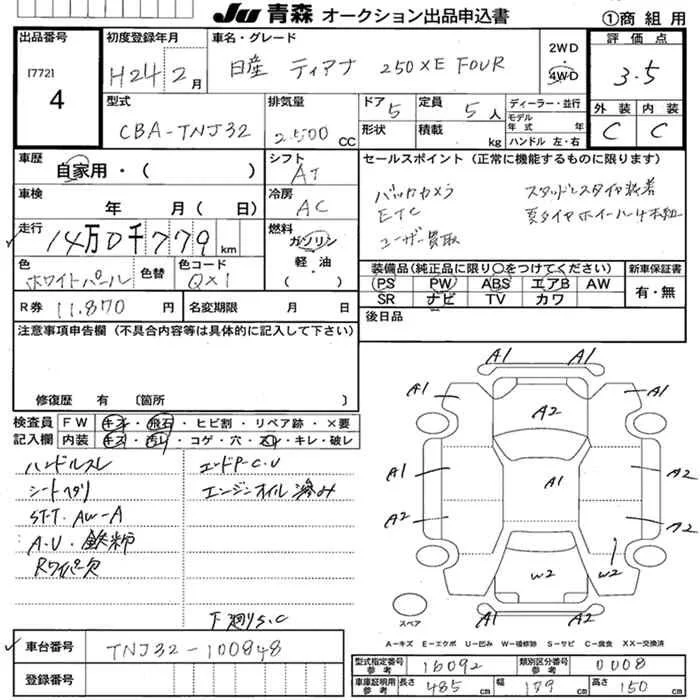 JU 青森 オークション出品申込書 ①商組用
出品番号
[772]
4
初度登録年月
H24 2月
車名・グレード
日産 ティアナ 250XE FOUR
2WD
4WD
評価点
3.5
型式
CBA-TNJ32
排気量
2.500 CC
ドア 5
定員 5人
形状
積載 kg
ディーラー・並行
モデル年式 年
ハンドル 左・右
外装 内装
C C
車歴
自家用・( )
シフト
AT
セールスポイント(正常に機能するものに限ります)
バックカメラ
ETC
ユーザー買取
スタッドレスタイヤ装着
夏タイヤホイール4本
車検
年 月( 日)
冷房
AC
走行
14万0千779km
燃料
ガソリン
軽・油
( )
色
ホワイトパール
色替
色コード
QX1
装備品(純正品に限り○をつけてください)
PS PW ABS エアB AW
SR ナビ TV カワ
新車保証書
有・無
R券 11.870 円
名変期限 月 日
後日品
注意事項申告欄(不具合内容等は具体的に記入して下さい)
修復歴 有 〔箇所 〕
検査員記入欄
FW キズ・飛石・ヒビ割・リペア跡・×要
内装 キズ・汚レ・コゲ・穴・スレ・キレ・破レ
ハンドルスレ
シートヘタリ
STT. AW-A
A.U・鉄粉
Rワイパー欠
エードP-C.U
エンジンオイル滲み
下廻りS.C
A1 A1
A1 A1
A2
A1 A1 A2
A2 A2
W2 W2
スペア
A=キズ E=エクボ U=凹み W=補修跡 S=サビ C=腐食 XX=交換済
車台番号
TNJ32-100848
登録番号
型式指定番号参考 16092
類別区分番号参考 0008
車庫証明用参考 長さ 485cm 幅 179cm 高さ 150cm